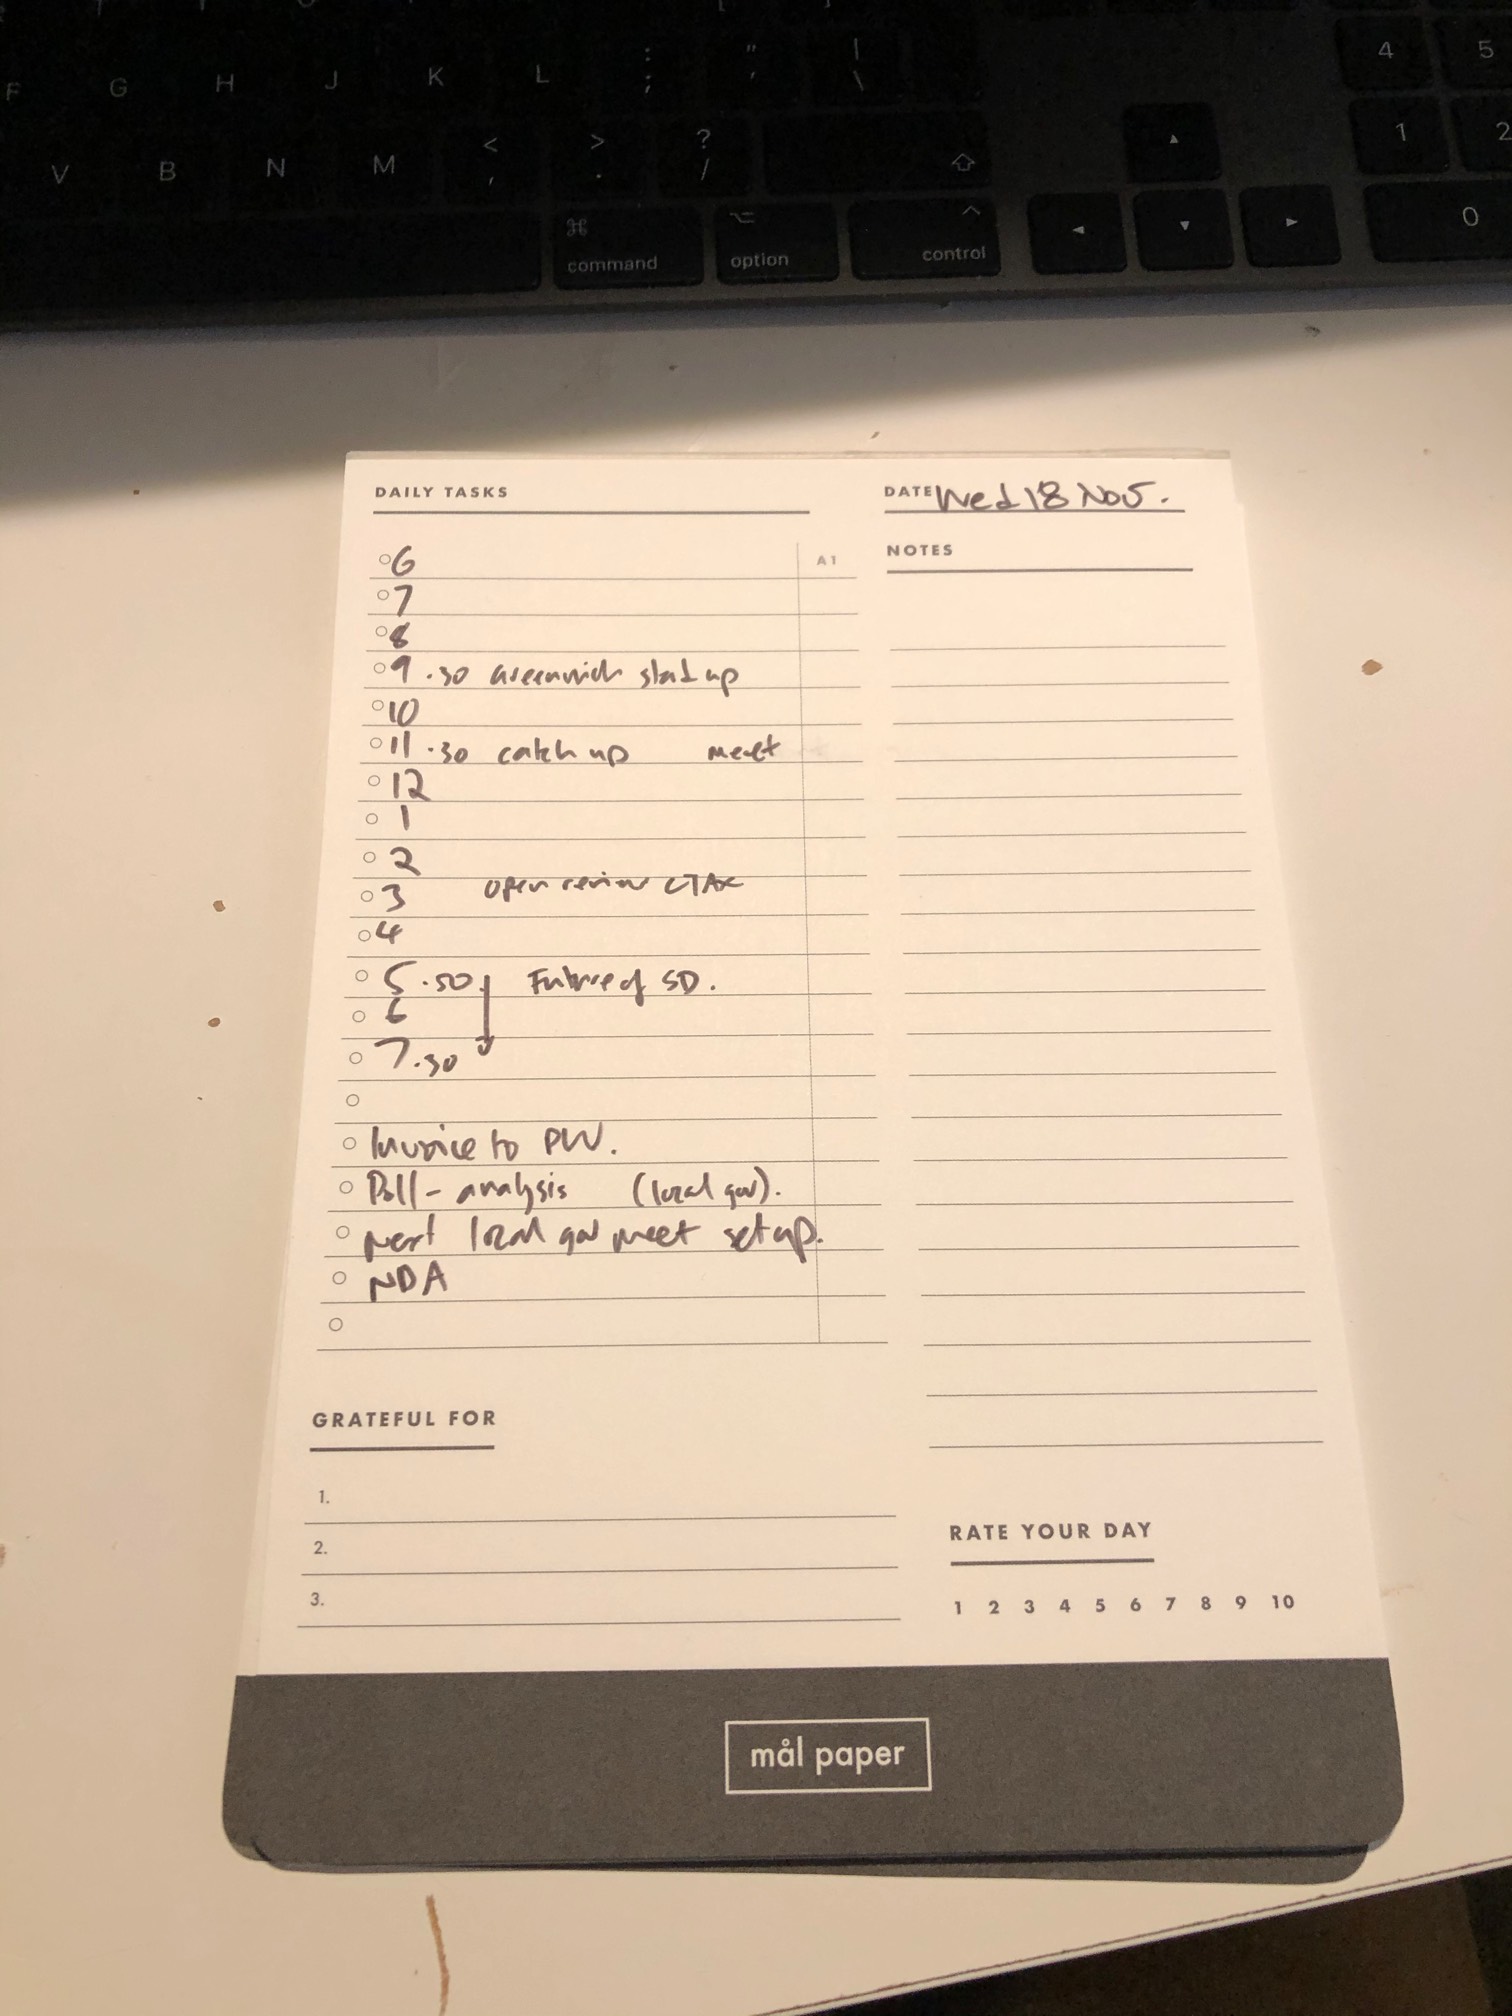 F G H J K L : ; " ' | \ 4 5
V B N M < , > . ? / 1 2
⌘ command ⌥ option ^ control 0
DAILY TASKS
DATE Wed 18 Nov.
NOTES
6 A1
7
8
9.30 Greenwich stand up
10
11.30 catch up meet
12
1
2
open review CTAX
3
4
5.50 Future of SD.
6
7.30
Invoice to PW.
Poll - analysis (local gov).
Next local gov meet set up.
NDA
GRATEFUL FOR
1.
2.
3.
RATE YOUR DAY
1 2 3 4 5 6 7 8 9 10
mål paper